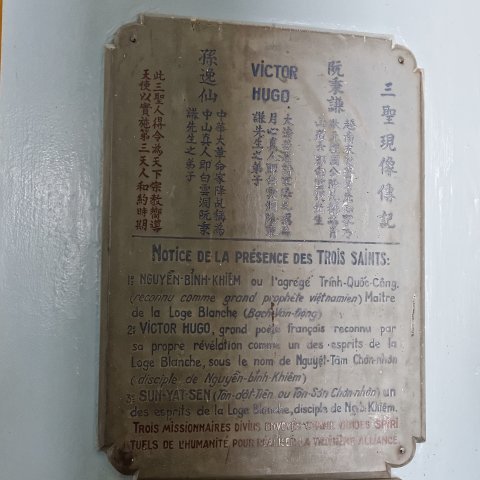 三聖現像傳記
阮秉謙
VICTOR
HUGO
月心真人即白雲洞阮秉
謙先生之弟子
孫逸仙
中華大革命家降乩稱為
中山真人即白雲洞阮秉
謙先生之弟子
此三聖人得令為天下宗教嚮導
天使以實施第三天人和約時期
NOTICE DE LA PRÉSENCE DES TROIS SAINTS:
1º NGUYỄN-BỈNH-KHIÊM ou l'agrégé Trình-Quốc-Công.
(reconnu comme grand prophète viêtnamien) Maître
de la Loge Blanche (Bạch-Vân-Động)
2º VICTOR HUGO, grand poète français reconnu par
sa propre révélation comme un des esprits de la
Loge Blanche, sous le nom de Nguyệt-Tâm Chơn-nhơn
(disciple de Nguyễn-bỉnh-Khiêm)
3º SUN-YAT-SEN (Tôn-dật-Tiên ou Tôn-Sơn Chơn-nhơn) un
des esprits de la Loge Blanche, disciple de Ng.b. Khiêm.
TROIS MISSIONNAIRES DIVINS GUIDES SPIRI
TUELS DE L'HUMANITÉ POUR LA ALLIANCE